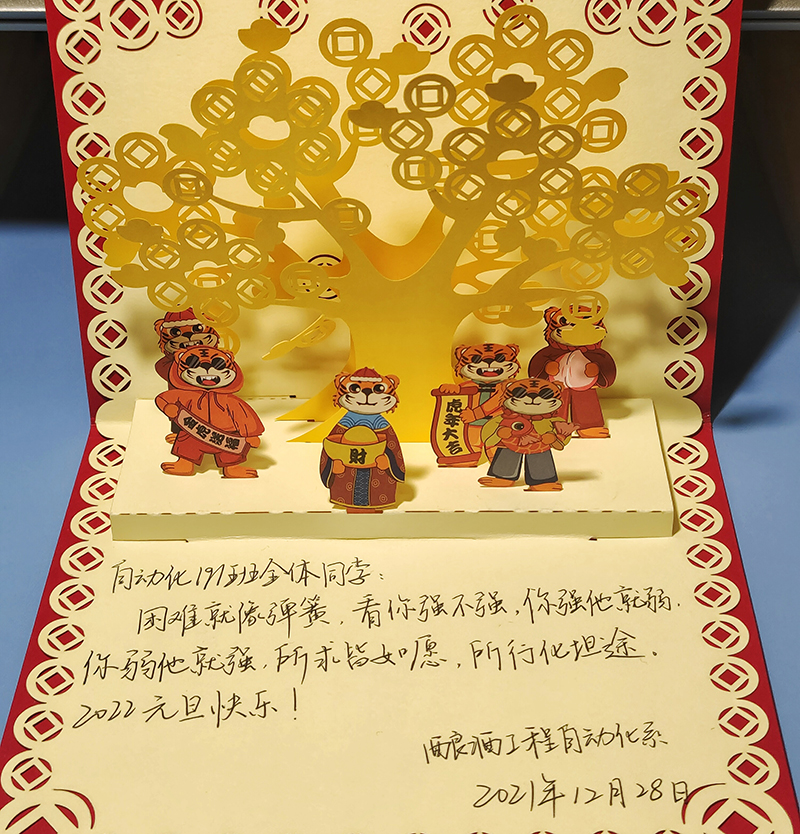 虎年大吉
財
自动化191班全体同学：
困难就像弹簧，看你强不强，你强他就弱.
你弱他就强，所求皆如愿，所行化坦途.
2022元旦快乐！
酿酒工程自动化系
2021年12月28日